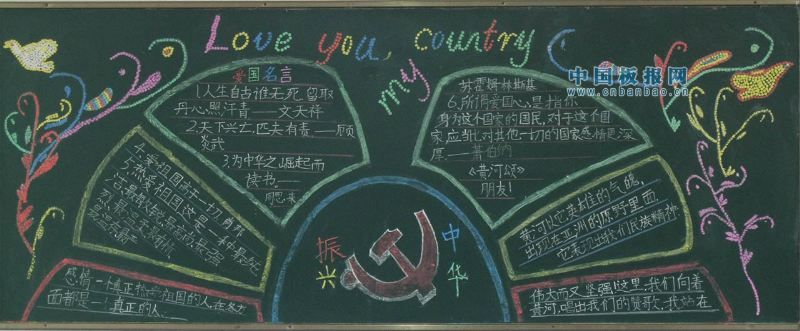 Love you, my country
中国板报网
www.cnbanbao.cn
爱国名言
1.人生自古谁无死,留取
丹心照汗青——文天祥
2.天下兴亡,匹夫有责——顾
炎武
3.为中华之崛起而
读书——
周恩来
4.爱祖国高于一切
5.热爱祖国,这是一种最
感情,一个真正热爱祖国的人,在各方
面都是一个真正的人
苏霍姆林斯基
6.所谓爱国心,是指你
身为这个国家的国民,对于这个国
家,应当比对其他一切的国家感情更深
厚——萧伯纳
《黄河颂》
朋友!
黄河以它英雄的气魄,
出现在亚洲的原野里面,
它表现出我们民族精神
伟大而又坚强!这里,我们向着
黄河,唱出我们的赞歌.我站在
振兴
中华